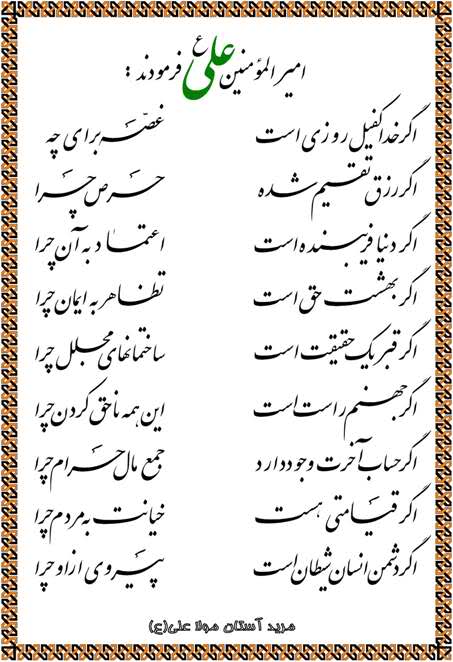 امیرالمؤمنین علی ع فرمودند :
اگر خدا کفیل روزی است غصّه برای چه
اگر رزق تقسیم شده حرص چرا
اگر دنیا فریبنده است اعتماد به آن چرا
اگر بهشت حق است تظاهر به ایمان چرا
اگر قبر یک حقیقت است ساختمانهای مجلل چرا
اگر جهنم راست است این همه ناحق کردن چرا
اگر حساب آخرت وجود دارد جمع مال حرام چرا
اگر قیامتی هست خیانت به مردم چرا
اگر دشمن انسان شیطان است پیروی از او چرا
مرید آستان مولا علی(ع)